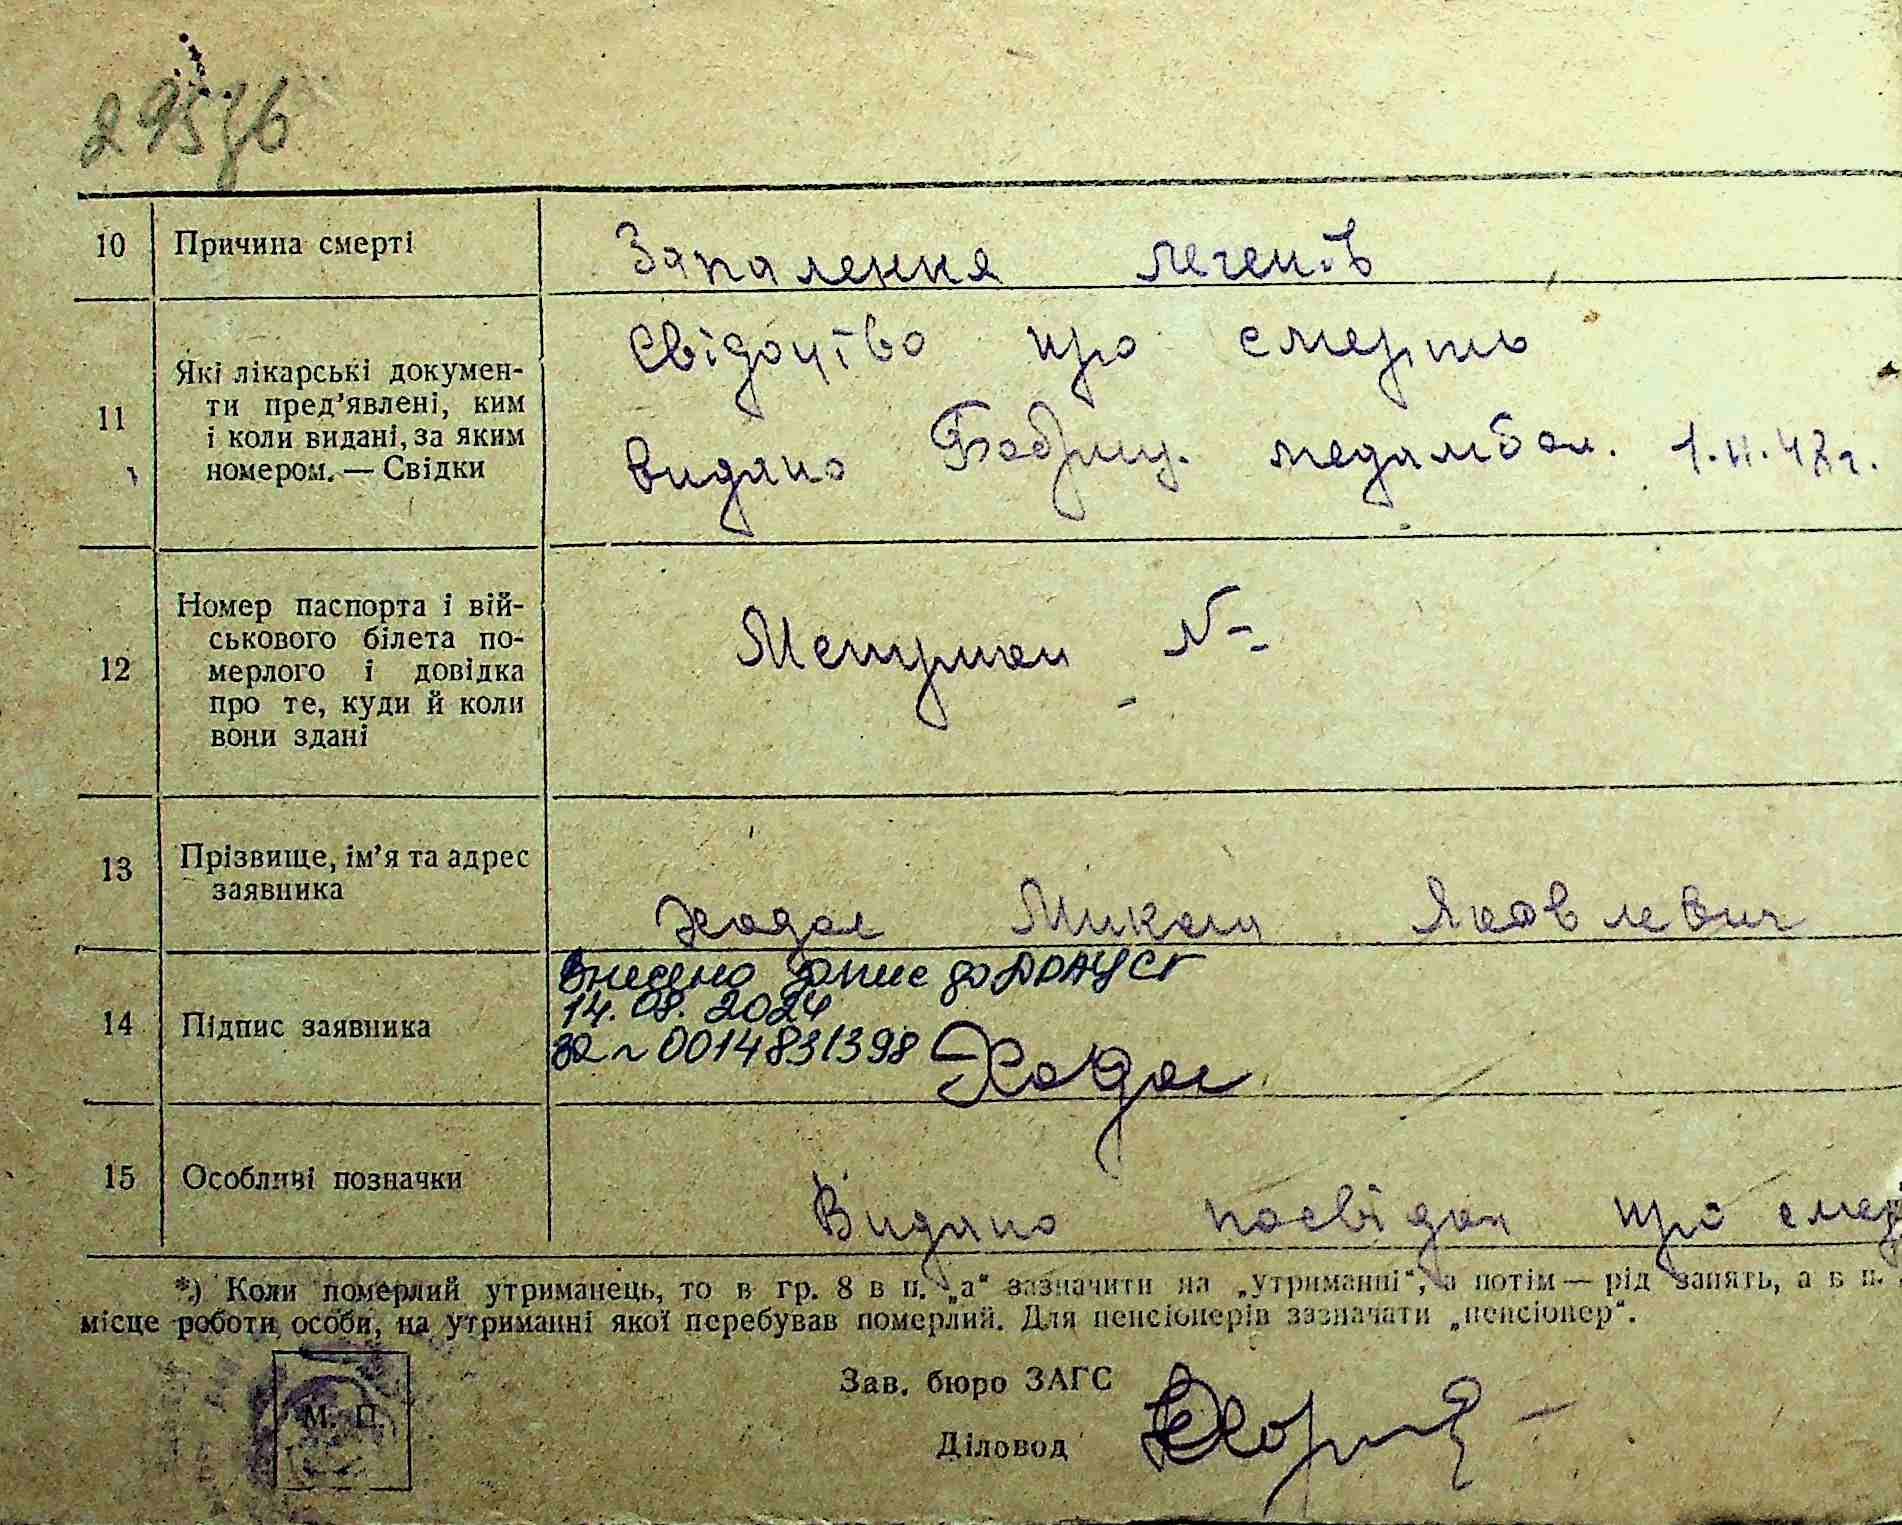 10 Причина смерті Запалення легенів
11 Які лікарські докумен-
ти пред'явлені, ким
і коли видані, за яким
номером. — Свідки
Свідоцтво про смерть
видано медамбол.
12 Номер паспорта і вій-
ськового білета по-
мерлого і довідка
про те, куди й коли
вони здані
№
13 Прізвище, ім'я та адрес
заявника
Ходос Микола Яковлевич
14 Підпис заявника
Внесено запис до ДРАЦСГ
14.08.2024
за № 0014831398
15 Особливі позначки
Видано посвідоч про смер
*) Коли померлий утриманець, то в гр. 8 в п. „а“ зазначити на „утриманні“, а потім — рід занять, а в п.
місце роботи особи, на утриманні якої перебував померлий. Для пенсіонерів зазначати „пенсіонер“.
М. П.
Зав. бюро ЗАГС
Діловод